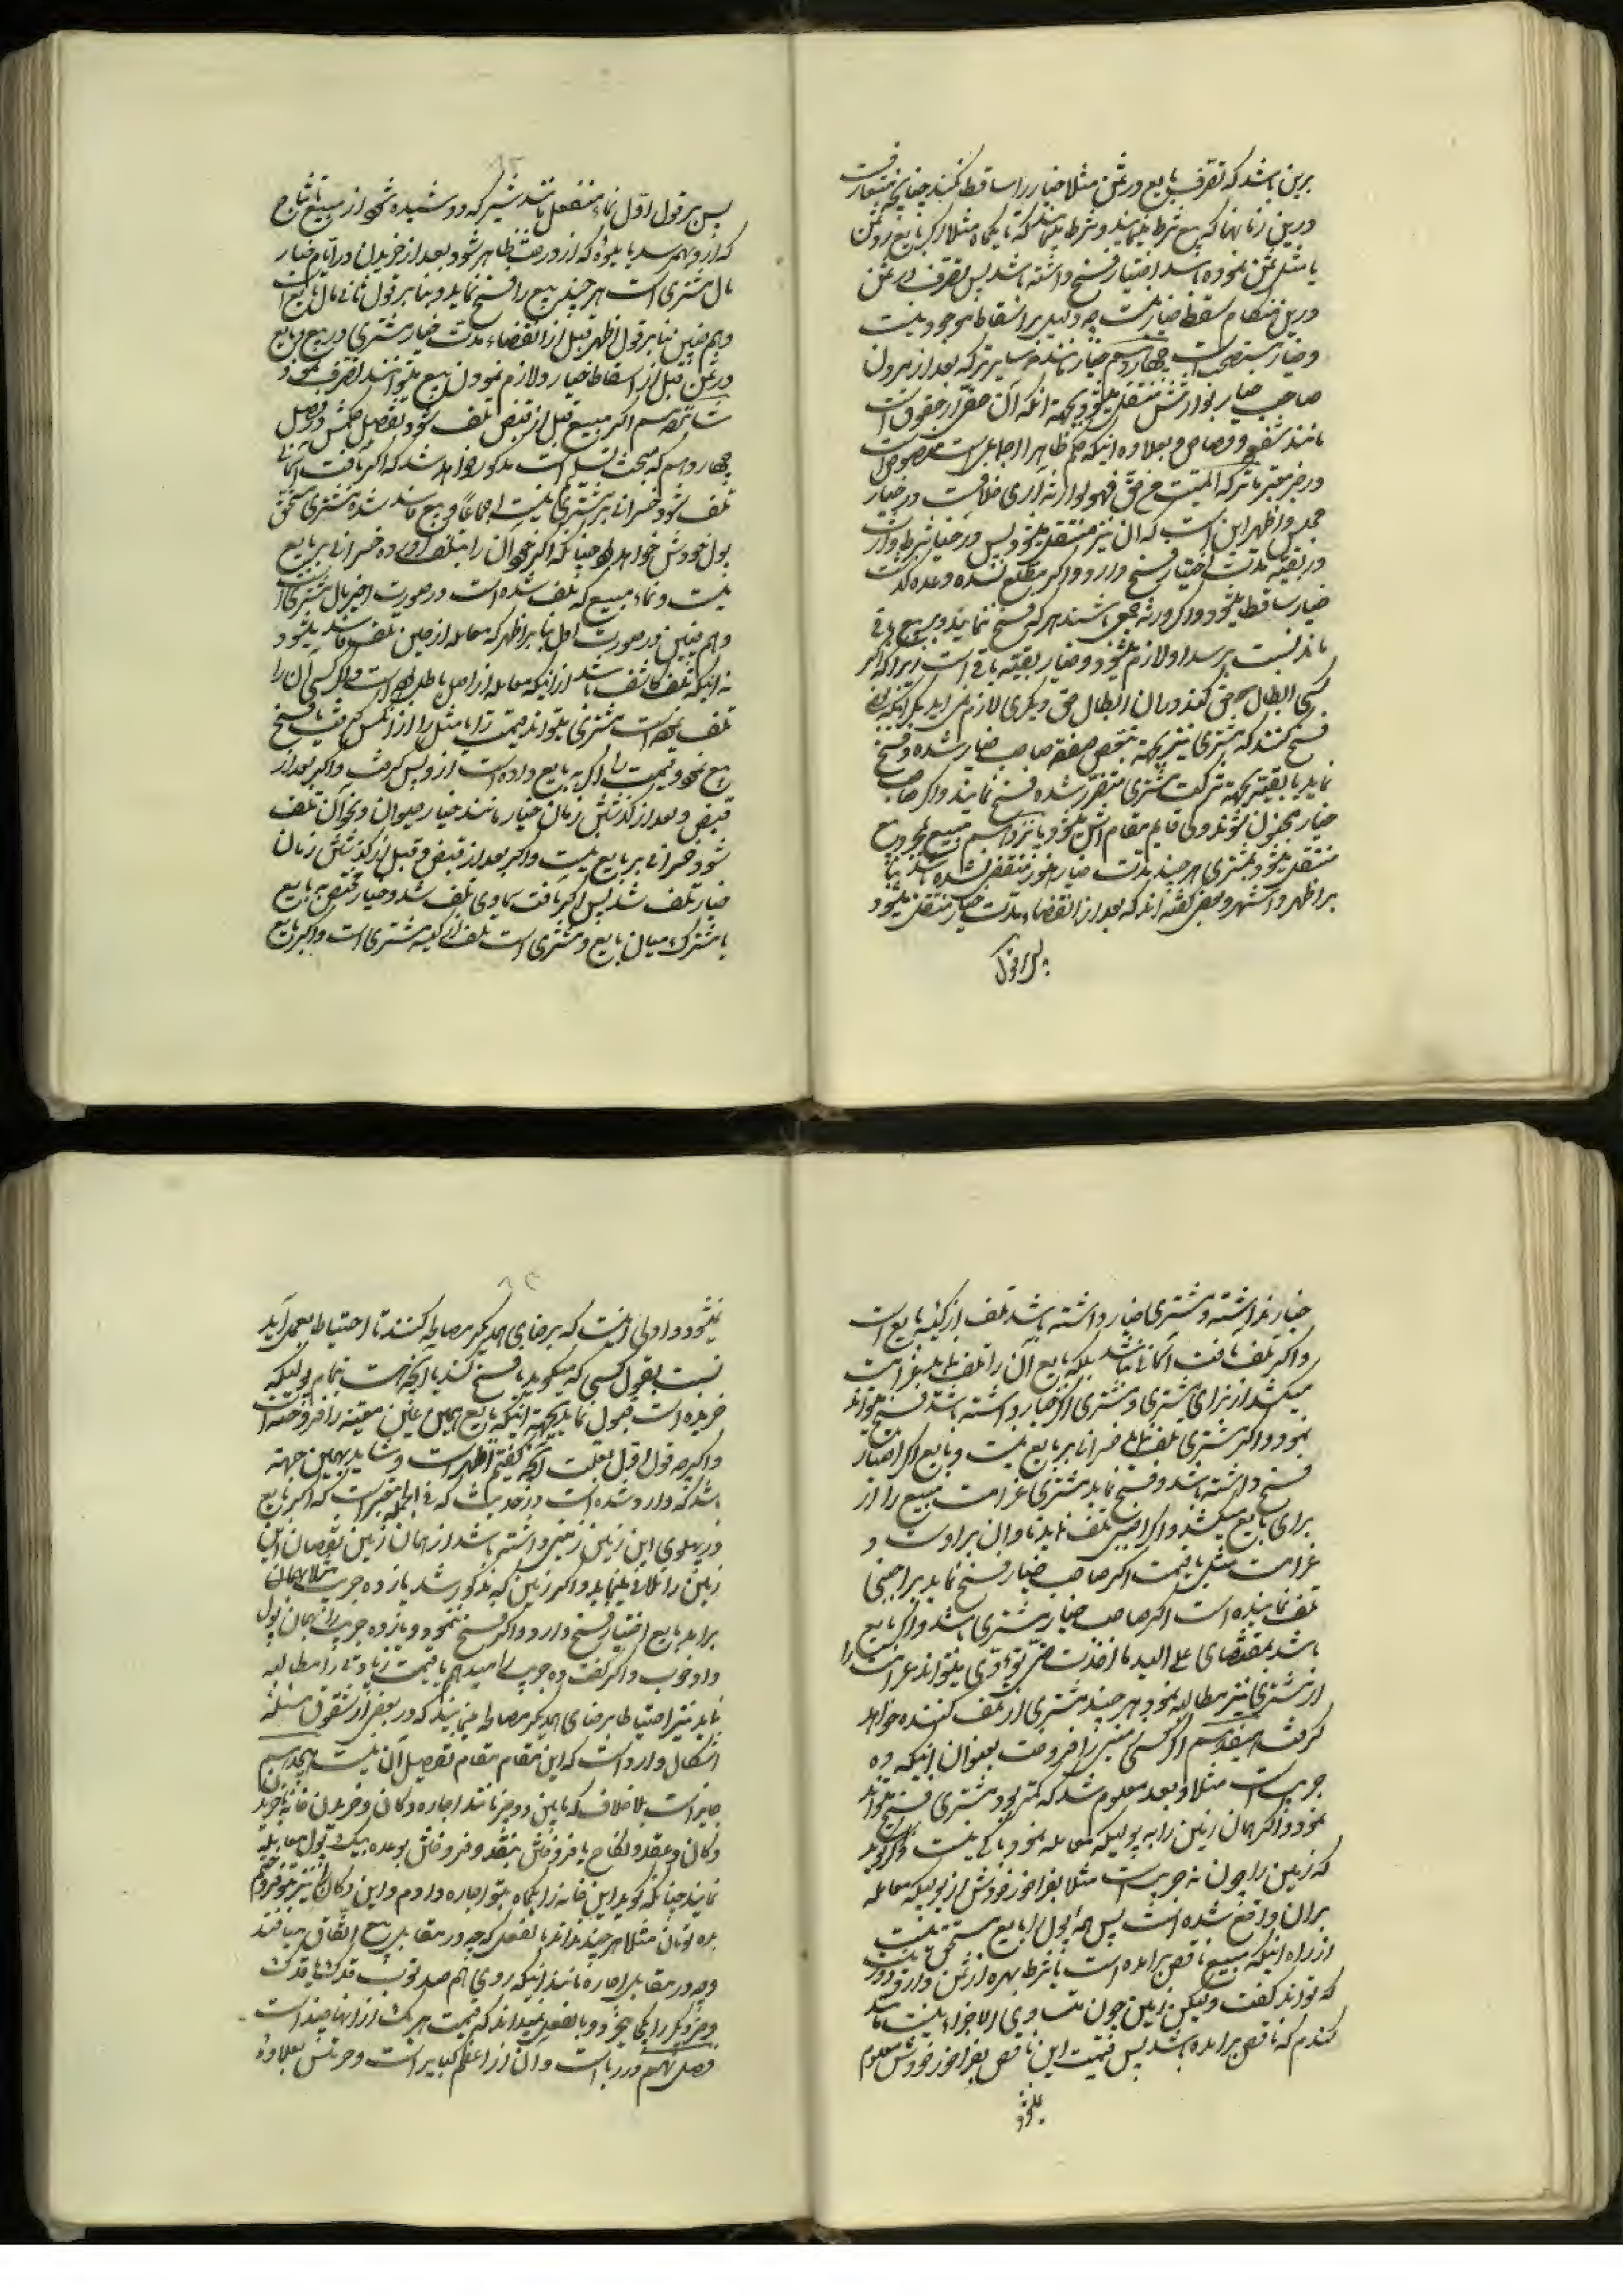 برین باشد که تصرف بایع در ثمن مثلا خیار را ساقط نکند چنانچه متعارفست
درین زمانها که بیع شرط مینمایند و شرط مینمایند که تا یکماه مثلا اگر بایع رد ثمن
یا مثل ثمن نموده باشد اختیار فسخ داشته باشد پس تصرف در ثمن
درین هنگام مسقط خیار نیست چه دلیل بر اسقاط موجود نیست
و خیار مستصحب است چهاردهم خیار مانند سایر ترکه بعد از مردن
صاحب خیار بوارثش منتقل میشود بجهة آنکه آن حقی از حقوق است
مانند شفعه و قصاص و بعلاوه اینکه حکم ظاهرا اجماعی است منصوص است
در خبر معتبر ما ترک المیت من حق فهو لوارثه آری خلافست در خیار
مجلس و اظهر این است که آن نیز منتقل میشود پس در خیار شرط وارث
در بقیه مدت اختیار فسخ دارد و اگر مطلع نشده وعده گذشت
خیار ساقط میشود و اگر ورثه جمعی باشند هر که فسخ ننماید بیع باقی
ماند نسبت برسد او لازم میشود و خیار بقیه باقی است زیرا که اگر
کسی ابطال حق کند از آن ابطال حق دیگری لازم نمی آید بلکه آنکه بعضی
فسخ کنند که مشتری نیز بجهة تبعض صفقه صاحب خیار شده و فسخ
نماید یا بقیه بجهة شرکت مشتری متضرر شده فسخ نمایند و اگر صاحب
خیار مجنون شود ولی قایم مقام اش میشود پانزدهم مبیع بمجرد بیع
منتقل میشود بمشتری هر چند مدت خیار هنوز منقضی نشده باشد بنا
بر اظهر و اشهر و بعضی گفته اند که بعد از انقضاء مدت خیار منتقل میشود
پس بر قول
پس بر قول اول نماء منفصل مانند شیر که دوشیده شود از مبیع یا نتاج
که از و بهم رسد یا میوه که از درخت ظاهر شود بعد از خریدن در ایام خیار
مال مشتری است هر چند بیع را فسخ نماید و بنا بر قول ثانی مال بایع است
و هم چنین بنا بر قول اظهر قبل از انقضاء مدت خیار مشتری در مبیع و بایع
در ثمن قبل از اسقاط خیار و لازم نمودن بیع میتوانند تصرف نمود
شانزدهم اگر مبیع قبل از قبض تلف شود تفصیل حکمش در فصل
چهاردهم که مبحث تسلیم است مذکور خواهد شد که اگر بآفت آسمانی
تلف شود خسرانی بر مشتری نیست اجماعا و بیع فاسد شده مشتری مستحق
پول خودش خواهد بود چنانکه اگر خود آن را تلف کرده خسرانی بر بایع
نیست و نماء مبیع که تلف شده است در صورت اخیر مال مشتری است
و هم چنین در صورت اول بنا بر اظهر که معامله از حین تلف فاسد میشود
نه اینکه تلف کاشف باشد از اینکه معامله از اصل باطل بوده است و اگر کسی آن را
تلف نموده است مشتری میتواند قیمت را یا مثل را از آنکس گرفت یا فسخ
بیع نمود و قیمت را اگر به بایع داده است ازو پس گرفت و اگر بعد از
قبض و بعد از گذشتن زمان خیار مانند خیار حیوان و نحو آن تلف
شود خسرانی بر بایع نیست و اگر بعد از قبض و قبل از گذشتن زمان
خیار تلف شد پس اگر بآفت سماوی تلف شد و خیار مختص به بایع
یا مشترک میان بایع و مشتری است تلف از کیسه مشتری است و اگر بایع
خیار نداشته و مشتری خیار داشته باشد تلف از کیسه بایع است
و اگر تلف بآفت آسمانی نباشد بلکه بایع آن را تلف نماید غرامت
میکشد از برای مشتری و مشتری اگر خیار داشته باشد فسخ میتواند
نمود و اگر مشتری تلف نماید خسرانی بر بایع نیست و بایع اگر اختیار
فسخ داشته باشد و فسخ نماید مشتری غرامت مبیع را از
برای بایع میکشد و اگر اجنبی تلف نماید تاوان بر اوست و
غرامت مثل یا قیمت اگر صاحب خیار فسخ نماید بر اجنبی
تلف نماینده است اگر صاحب خیار مشتری باشد و اگر بایع
باشد بمقتضای علی الید ما اخذت حتی تؤدی میتواند غرامت را
از مشتری نیز مطالبه نمود هر چند مشتری از تلف کننده خواهد
گرفت هفدهم اگر کسی زمینی را فروخت بعنوان اینکه ده
جریب است مثلا و بعد معلوم شد که کمتر بود مشتری فسخ میتواند
نمود و اگر همان زمین را به پولیکه معامله نمود باکی نیست و اگر گوید
که زمین را چون نه جریب است مثلا بفراخور خودش از پولیکه معامله
بر آن واقع شده است پس همه پول را بایع مستحق نیست
از راه اینکه مبیع ناقص برآمده است یا شرط بهره از ثمن دارد و دور
که تواند گفت ولیکن زمین چون متساوی الاجزاء نیست مانند
گندم که ناقص برآمده باشد پس قیمت این ناقص بفراخور خودش معلوم
نمیشود
نمیشود و اولی آنست که برضای همدیگر مصالحه کنند تا احتیاط بعمل آید
نسبت بقول کسی که میگوید یا فسخ کند یا آنچه هست بتمام پولیکه
خریده است قبول نماید بجهة اینکه بایع همین عین معینه را فروخته است
و اگر چه قول اول بعلت آنچه گفتیم اظهر است و شاید بهمین جهة
باشد که وارد شده است در حدیث که فی الجمله معتبر است که اگر بایع
در پهلوی این زمین زمینی داشته باشد از همان زمین نقصان این
زمین را تلافی مینماید و اگر زمین که مذکور شد یازده جریب مثلا
برآمد بایع اختیار فسخ دارد و اگر فسخ ننمود و یازده جریب را بهمان پول
داد خوب و اگر گفت ده جریب را میدهم یا قیمت زیادتی را مطالبه
نماید نیز احتیاطا برضای همدیگر مصالحه نمایند که در بعضی از شقوق مسئله
اشکال وارد است که این مقام مقام تفصیل آن نیست هجدهم
جایز است بلا خلاف که مابین دو چیز مانند اجاره دکان و خریدن خانه یا خرید
دکان و عقد و نکاح یا فروختن بنقد و فروختن بوعده بیک پول معامله
نمایند چنانکه گوید این خانه را یکماه بتو اجاره دادم و این دکان را نیز بتو فروختم
بده تومان مثلا هر چند ندانند بالفعل که چه در مقابل بیع اتفاق میافتد
و چه در مقابل اجاره مانند اینکه روی هم صد توب قدک یا قدک
و چیز دیگر را یکجا بخرد و بالفعل نمیداند که قیمت هر یک از آنها چند است
فصل نهم در ربا است و آن از اعظم کبایر است و حرمتش بعلاوه